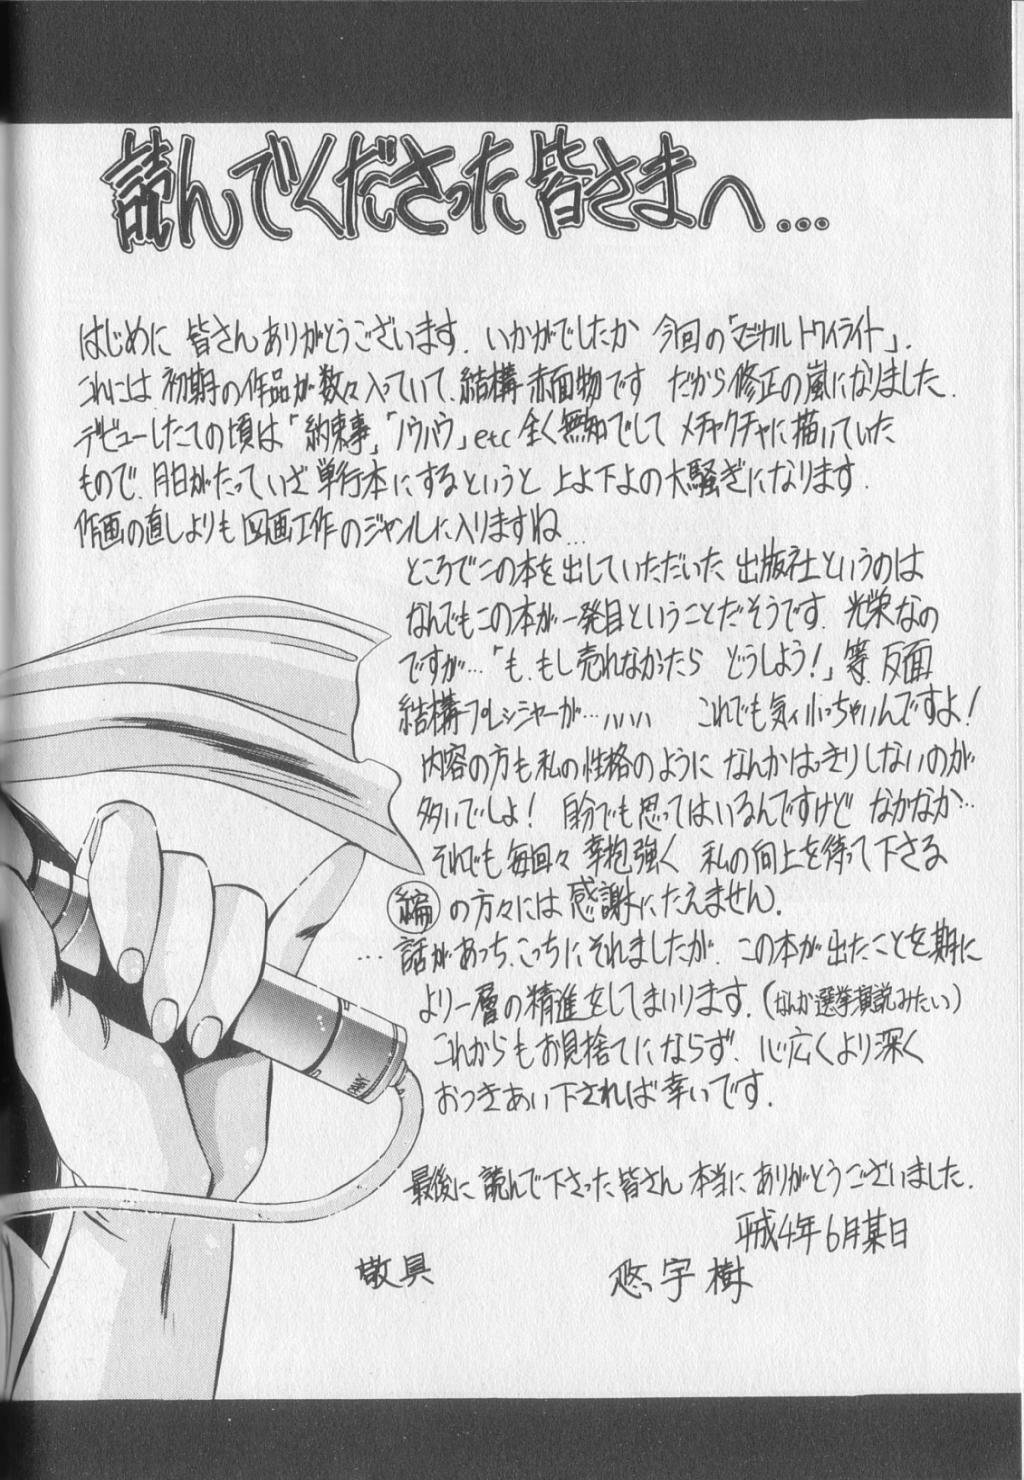 読んでくださった皆さまへ...
はじめに 皆さんありがとうございます. いかがでしたか 今回の「マジカルトワイライト」.
これには 初期の作品が数々入っていて、結構赤面物です だから修正の嵐になりました.
デビューしたての頃は「約束事」「ノウハウ」etc 全く無知でして メチャクチャに描いていた
もので、月日がたっていざ単行本にするというと 上よ下よの大騒ぎになります.
作画の直しよりも 図画工作のジャンルに入りますね...
ところでこの本を出していただいた 出版社というのは
なんでもこの本が一発目ということだそうです. 光栄なの
ですが…「も、もし売れなかったら どうしよう!」等、反面
結構プレッシャーが…ハハハ これでも気ィ小っちゃいんですよ!
内容の方も私の性格のように なんかはっきりしないのが
多いでしょ! 自分でも思ってはいるんですけど なかなか…
それでも毎回々 辛抱強く 私の向上を待って下さる
編の方々には感謝にたえません.
…話があっち、こっちにそれましたが、この本が出たことを期に
より一層の精進をしてまいります.(なんか選挙演説みたい)
これからもお見捨てにならず、心広くより深く
おつきあい下されば幸いです.
最後に 読んで下さった皆さん 本当にありがとうございました.
平成4年6月某日
敬具 悠宇樹